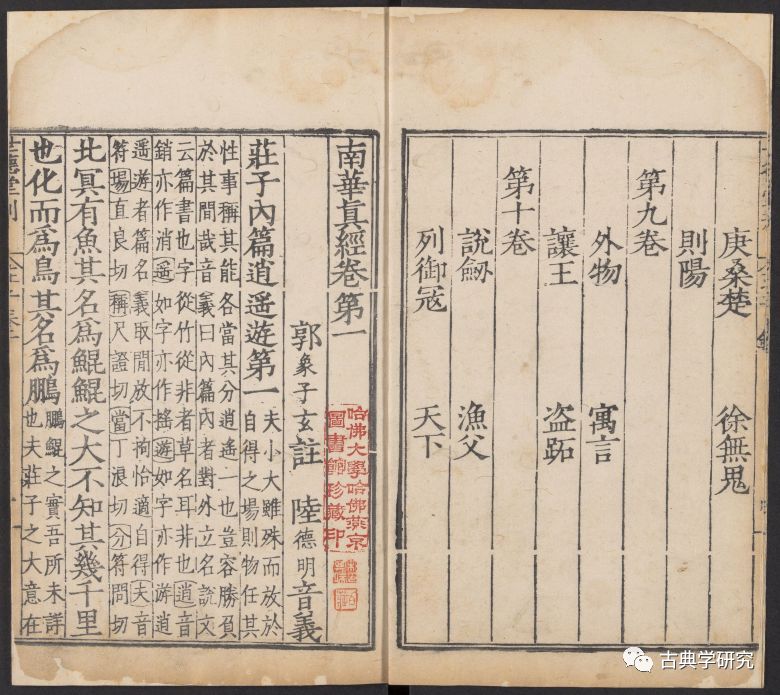 庚桑楚 徐無鬼
則陽
第九卷
外物 寓言
讓王 盗跖
第十卷
說劒 漁父
列御冦 天下
南華真經卷第一
郭象子玄註 陸德明音義
莊子內篇逍遙遊第一
夫小大雖殊而放於
自得之場則物任其
性事稱其能各當其分逍遙一也豈容勝負
於其間哉音義曰內篇內者對外立名說文
云篇書也字從竹從非者草名耳非也逍音
銷亦作消遙如字亦作搖遊如字亦作游逍
遙遊者篇名義取閒放不拘怡適自得夫音
符場直良切稱尺證切當丁浪切分符問切
北冥有魚其名爲鯤鯤之大不知其幾千里
也化而爲鳥其名爲鵬
鵬鯤之實吾所未詳
也夫莊子之大意在
世德堂刊
哈佛大學哈佛燕京
圖書館珍藏印
古典学研究